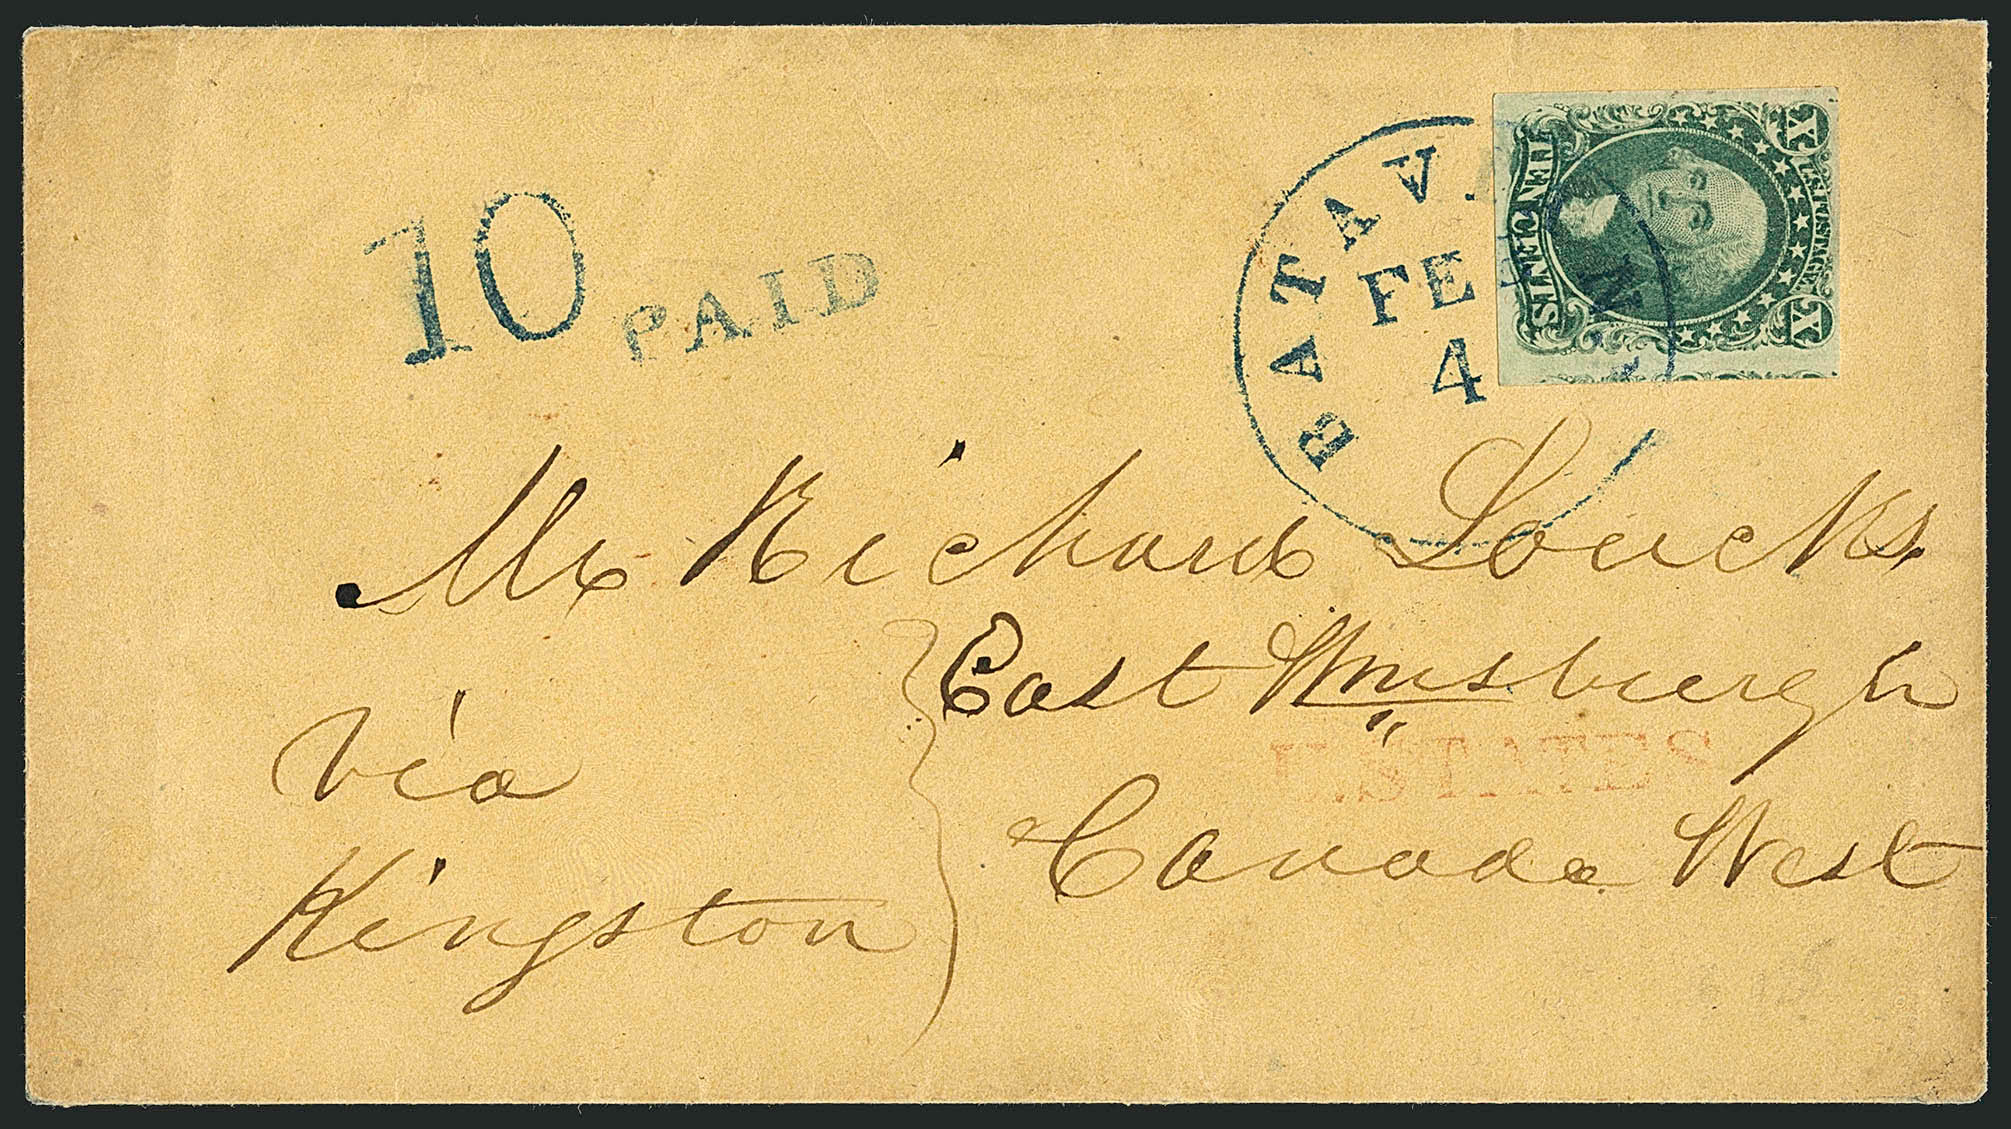 10 PAID
BATAVIA N
FEB
4
X U.S. POSTAGE X
TEN CENTS
Mr Richard Loucks.
East Wmsburgh
U. STATES
Canada West
via
Kingston